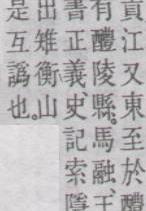 貢江又東至於醴
有醴陵縣。馬融、王
書正義、史記索隱
出雉衡山
是互譌也。